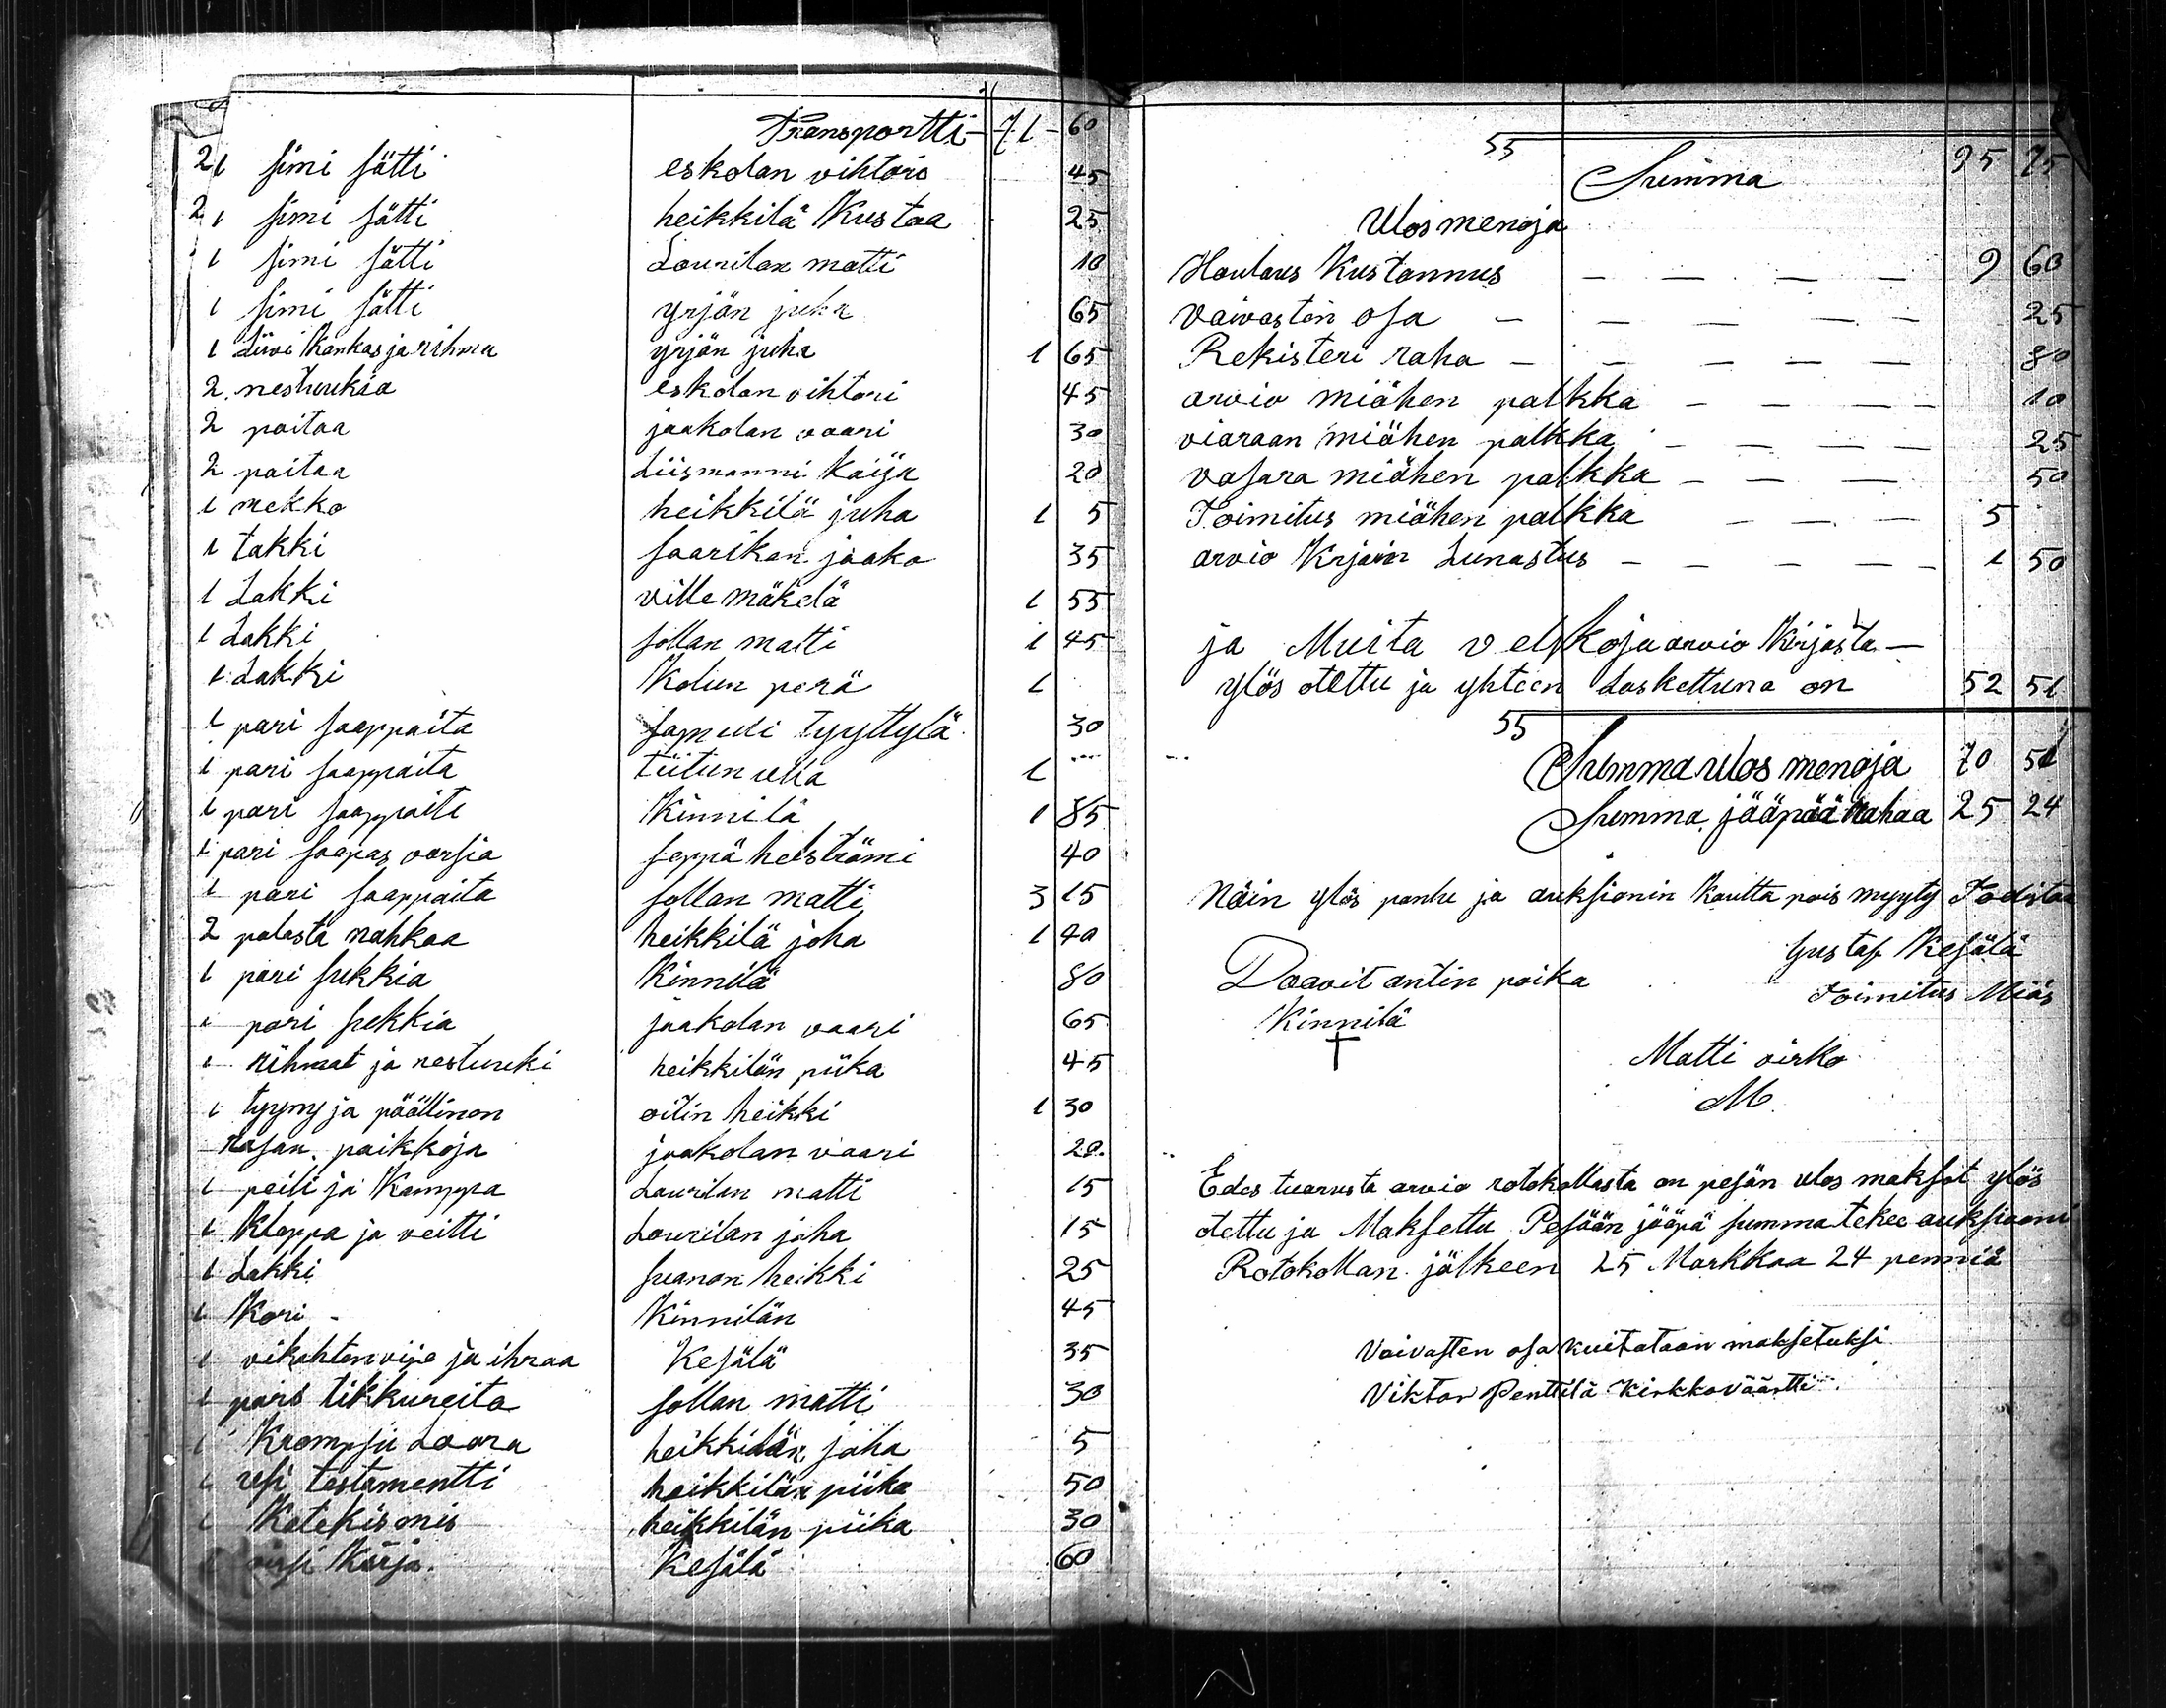 Transportti 71 60
21 simi sätti eskolan vihtöri 45
21 simi sätti heikkilä Kustaa 25
1 simi sätti Laurilan matti 10
1 simi sätti yrjän juha 65
1 Liivi Kankas ja rihma yrjän juha 1 65
2 nestuukia eskolan vihtori 45
2 paitaa jaakolan vaari 30
2 paitaa Liismanni Kaija 20
1 mekko heikkilä juha 1 5
1 takki saarikan jaako 35
1 Lakki ville mäkelä 1 55
1 Lakki sollan matti 1 45
1 Lakki Kolun perä 1
1 pari saappaita samuli tyyttylä 30
1 pari saappaita tiitun ulla 1
1 pari saappaita Kinnilä 1 85
1 pari saapas varsia seppä helströmi 40
1 pari saappaita sollan matti 3 15
2 palasta nahkaa heikkilä joha 1 40
1 pari sukkia Kinnilä 80
1 pari sukkia jaakolan vaari 65
1 rihmat ja nestuuki heikkilän piika 45
1 tyyny ja päällinon oitin heikki 1 30
rasan paikkoja jaakolan vaari 20
1 peili ja Kamppa Laurilan matti 15
1 Klappa ja veitti Laurilan joha 15
1 Lakki suanon heikki 25
1 Kori Kinnilän 45
1 vikahten vije ja ihraa Kesälä 35
1 pari tikkureita sollan matti 30
1 Krampsii Laara heikkilän joha 5
1 usi testamentti heikkilän piika 50
1 Katekismis heikkilän piika 30
1 virsi Kirja. Kesälä 60
55
Summa 95 75
Ulosmenoja
Hautaus Kustannus 9 60
Vaivasten osa 25
Rekisteri raha 80
arvio miähen palkka 10
viaraan miähen palkka 25
vasara miähen palkka 50
Toimitus miähen palkka 5
arvio Krjain Lunastus 1 50
ja Muita velkoja arvio Kirjasta
ylös otettu ja yhteen Laskettuna on 52 51
55
Summa ulos menoja 70 51
Summa jääpää rahaa 25 24
Näin ylös pantu ja auksionin Kautta pois myyty Todistaa
Gustaf Kesälä
Toimitus Miäs
Daavit antin poika
Kinnilä
Matti virko
M
Edes tuarusta arvio rotokollasta on pesän ulos maksot ylös
otettu ja Maksettu Pesään jääpä summa tekee auksiooni
Rotokollan jälkeen 25 Markkaa 24 penniä
Vaivasten osa kuitataan maksetuksi
Viktor Penttilä Kirkkoväärtti.